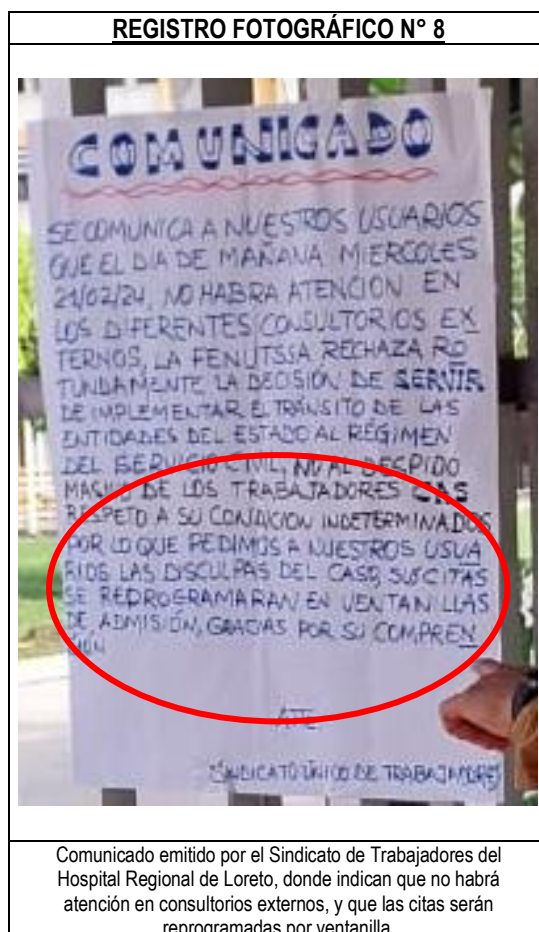 REGISTRO FOTOGRÁFICO N° 8
COMUNICADO
SE COMUNICA A NUESTROS USUARIOS
QUE EL DIA DE MAÑANA MIERCOLES
21/02/24, NO HABRA ATENCION EN
LOS DIFERENTES CONSULTORIOS EX
TERNOS, LA FENUTSSA RECHAZA RO
TUNDAMENTE LA DECISIÓN DE SERVIR
DE IMPLEMENTAR EL TRÁNSITO DE LAS
ENTIDADES DEL ESTADO AL RÉGIMEN
DEL SERVICIO CIVIL, NO AL DESPIDO
MASIVO DE LOS TRABAJADORES CAS
RESPETO A SU CONDICION INDETERMINADOS
POR LO QUE PEDIMOS A NUESTROS USUA
RIOS LAS DISCULPAS DEL CASO, SUS CITAS
SE REDROGRAMARAN EN VENTANILLAS
DE ADMISIÓN, GRACIAS POR SU COMPREN
SIÓN
ATTE
SINDICATO ÚNICO DE TRABAJADORES
Comunicado emitido por el Sindicato de Trabajadores del
Hospital Regional de Loreto, donde indican que no habrá
atención en consultorios externos, y que las citas serán
reprogramadas por ventanilla